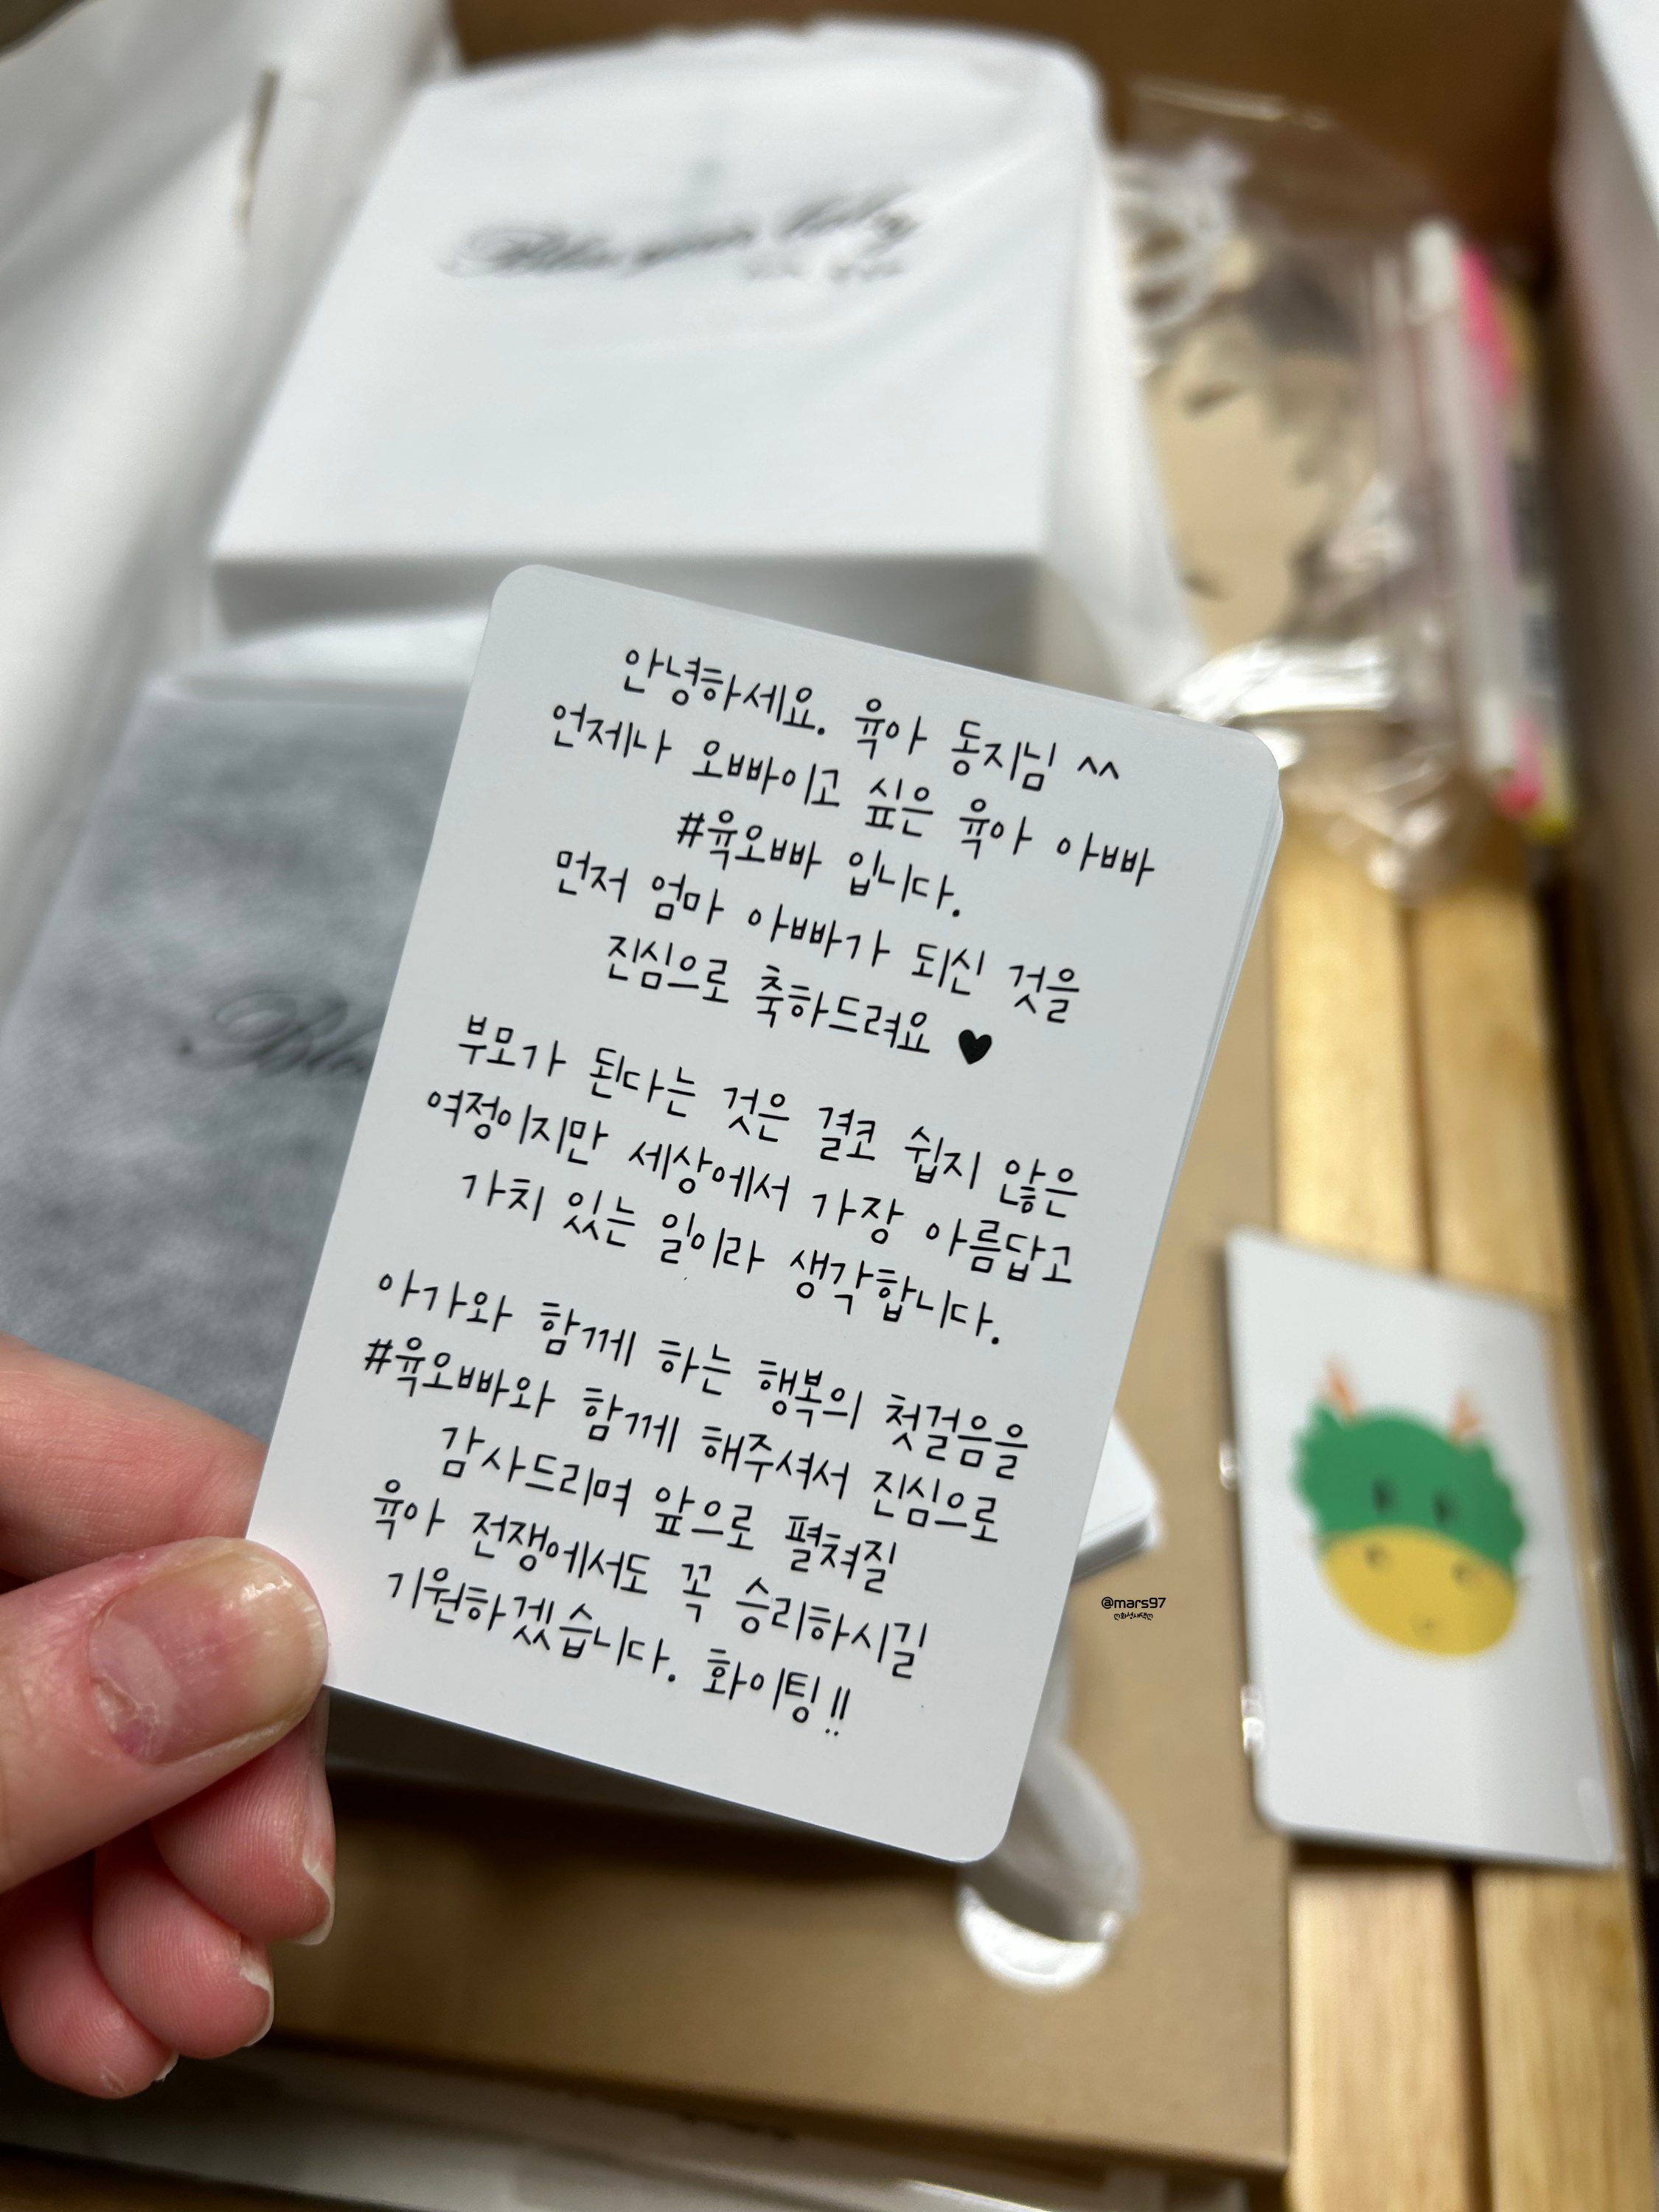 안녕하세요. 육아 동지님 ^^
언제나 오빠이고 싶은 육아 아빠
#육오빠 입니다.
먼저 엄마 아빠가 되신 것을
진심으로 축하드려요 ♥
부모가 된다는 것은 결코 쉽지 않은
여정이지만 세상에서 가장 아름답고
가치 있는 일이라 생각합니다.
아가와 함께 하는 행복의 첫걸음을
#육오빠와 함께 해주셔서 진심으로
감사드리며 앞으로 펼쳐질
육아 전쟁에서도 꼭 승리하시길
기원하겠습니다. 화이팅!!
@mars97